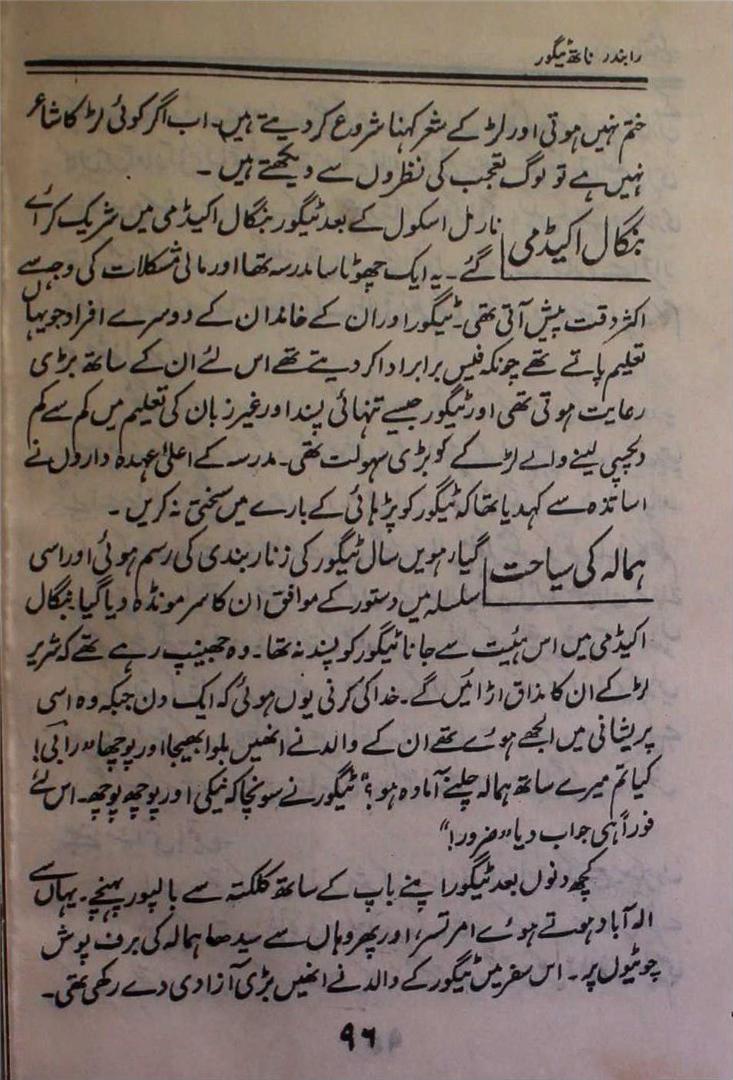 رابندر ناتھ ٹیگور
ختم نہیں ہوتی اور لڑکے شعر کہنا شروع کر دیتے ہیں۔ اب اگر کوئی لڑکا شاعر
نہیں ہے تو لوگ تعجب کی نظروں سے دیکھتے ہیں ۔
بنگال اکیڈمی
نارمل اسکول کے بعد ٹیگور بنگال اکیڈمی میں شریک کرائے
گئے۔ یہ ایک چھوٹا سا مدرسہ تھا اور مالی مشکلات کی وجہ سے
اکثر دقت پیش آتی تھی۔ ٹیگور اور ان کے خاندان کے دوسرے افراد جو یہاں
تعلیم پاتے تھے چونکہ فیس برابر ادا کر دیتے تھے اس لئے ان کے ساتھ بڑی
رعایت ہوتی تھی اور ٹیگور جیسے تنہائی پسند اور غیر زبان کی تعلیم میں کم سے کم
دلچسپی لینے والے لڑکے کو بڑی سہولت تھی۔ مدرسہ کے اعلیٰ عہدہ داروں نے
اساتذہ سے کہدیا تھا کہ ٹیگور کو پڑہائی کے بارے میں سختی نہ کریں ۔
ہمالہ کی سیاحت
گیارہویں سال ٹیگور کی زنار بندی کی رسم ہوئی اور اسی
سلسلہ میں دستور کے موافق ان کا سر مونڈہ دیا گیا بنگال
اکیڈمی میں اس ہئیت سے جانا ٹیگور کو پسند نہ تھا۔ وہ جھینپ رہے تھے کہ شریر
لڑکے ان کا مذاق اڑائیں گے۔ خدا کی کرنی یوں ہوئی کہ ایک دن جبکہ وہ اسی
پریشانی میں الجھے ہوئے تھے ان کے والد نے انھیں بلوا بھیجا اور پوچھا ”رابی!
کیا تم میرے ساتھ ہمالہ چلنے آمادہ ہو؟“ ٹیگور نے سونچا کہ نیکی اور پوچھ پوچھ۔ اس لئے
فوراً ہی جواب دیا ”ضرور!“
کچھ دنوں بعد ٹیگور اپنے باپ کے ساتھ کلکتہ سے بالپور پہنچے۔ یہاں سے
الہ آباد ہوتے ہوئے امرتسر، اور پھر وہاں سے سیدھا ہمالہ کی برف پوش
چوٹیوں پر۔ اس سفر میں ٹیگور کے والد نے انھیں بڑی آزادی دے رکھی تھی۔
۹۶